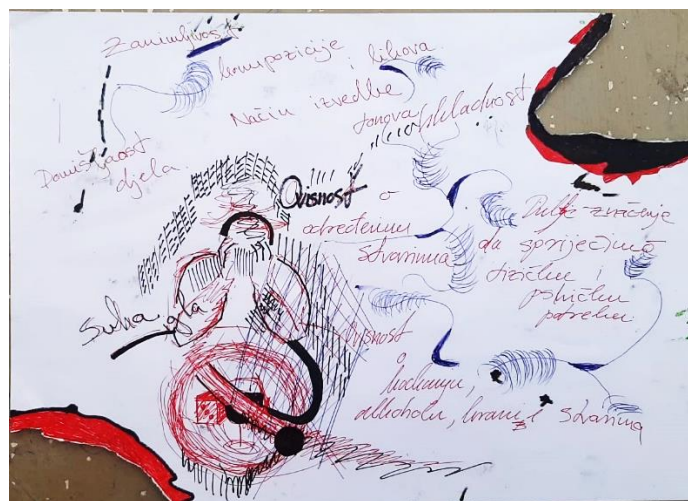 Zanimljivost
kompozicije i likova.
Način izvedbe
tonova
skladnost
Domišljatost
djela.
Ovisnost o
određenim
stvarima
da spriječimo
fizičku i
psihičku
potrebu
suha igla
Ovisnost
o
kockanju,
alkoholu, hrani i stvarima